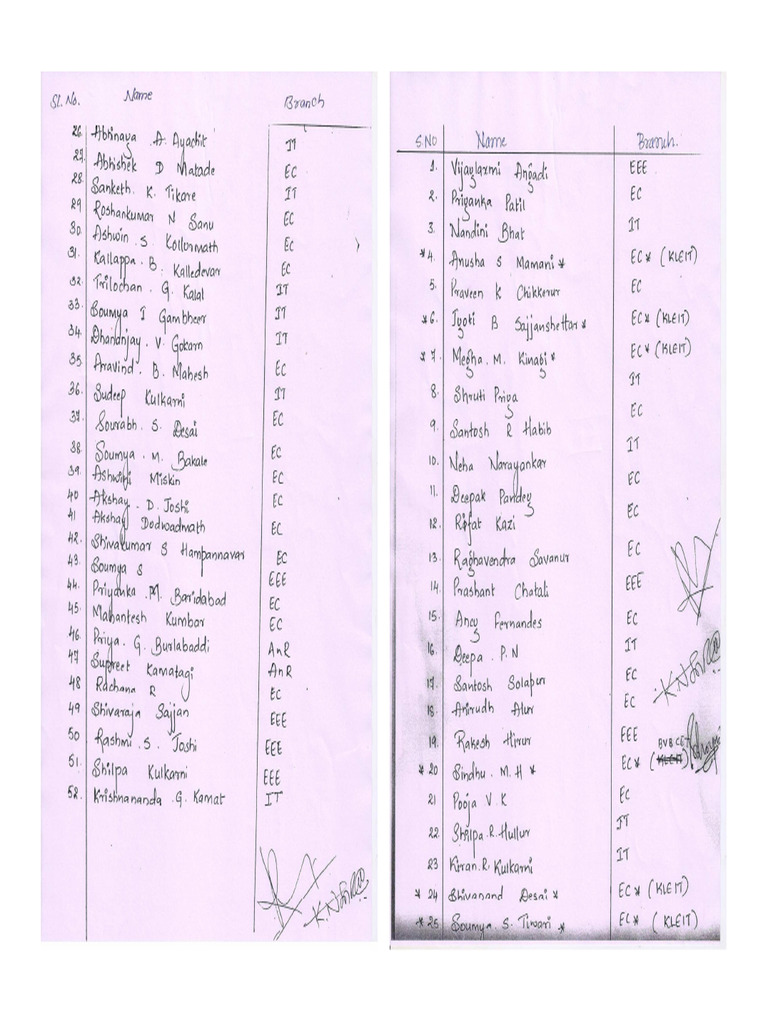 Sl. No. Name Branch
26. Abhinaya .A. Ayachit IT
27. Abhishek D Matade EC
28. Sanketh. K. Tikare IT
29 Roshankumar N Sanu EC
30. Ashwin .S. Kollurmath EC
31. Kallappa . B. Kalledevar EC
32. Trilochan . G. Kalal IT
33. Soumya I Gambheer IT
34. Dhananjay . V. Gokarn IT
35. Aravind . B. Mahesh EC
36. Sudeep Kulkarni IT
37. Sourabh . S. Desai EC
38. Soumya . M. Bakale EC
39. Ashwini Miskin EC
40 Akshay . D. Joshi EC
41 Akshay Dodwadmath EC
42. Shivakumar S Hampannavar EC
43. Soumya S EEE
44. Priyanka .M. Baridabad EC
45. Mahantesh Kumbar EC
46. Priya. G. Burlabaddi AnR
47 Supreet Kamatagi AnR
48 Rachana R EC
49 Shivaraja Sajjan EEE
50 Rashmi .S. Joshi EEE
51. Shilpa Kulkarni EEE
52. Krishnananda .G. Kamat IT
S.NO Name Branch.
1. Vijaylaxmi Angadi EEE
2. Priyanka Patil EC
3. Nandini Bhat IT
*4. Anusha S Mamani * EC* (KLEIT)
5. Praveen K Chikkerur EC
*6. Jyoti B Sajjanshettar * EC* (KLEIT)
*7. Megha. M. Kinagi * EC* (KLEIT)
8. Shruti Priya IT
9. Santosh R Habib EC
10. Neha Narayankar IT
11. Deepak Pandey EC
12. Rifat Kazi EC
13. Raghavendra Savanur EC
14. Prashant Chatali EEE
15. Ancy Fernandes EC
16. Deepa . P. N IT
17. Santosh Solapur EC
18. Anirudh Alur EC
19. Rakesh Hirur EEE
*20 Sindhu . M. H * EC* (KLEIT) BVBCET
21 Pooja V. K EC
22. Shilpa.R. Hullur IT
23 Kiran.R. Kulkarni IT
*24 Shivanand Desai * EC* (KLEIT)
*25 Soumya. S. Tiwari * EC* (KLEIT)